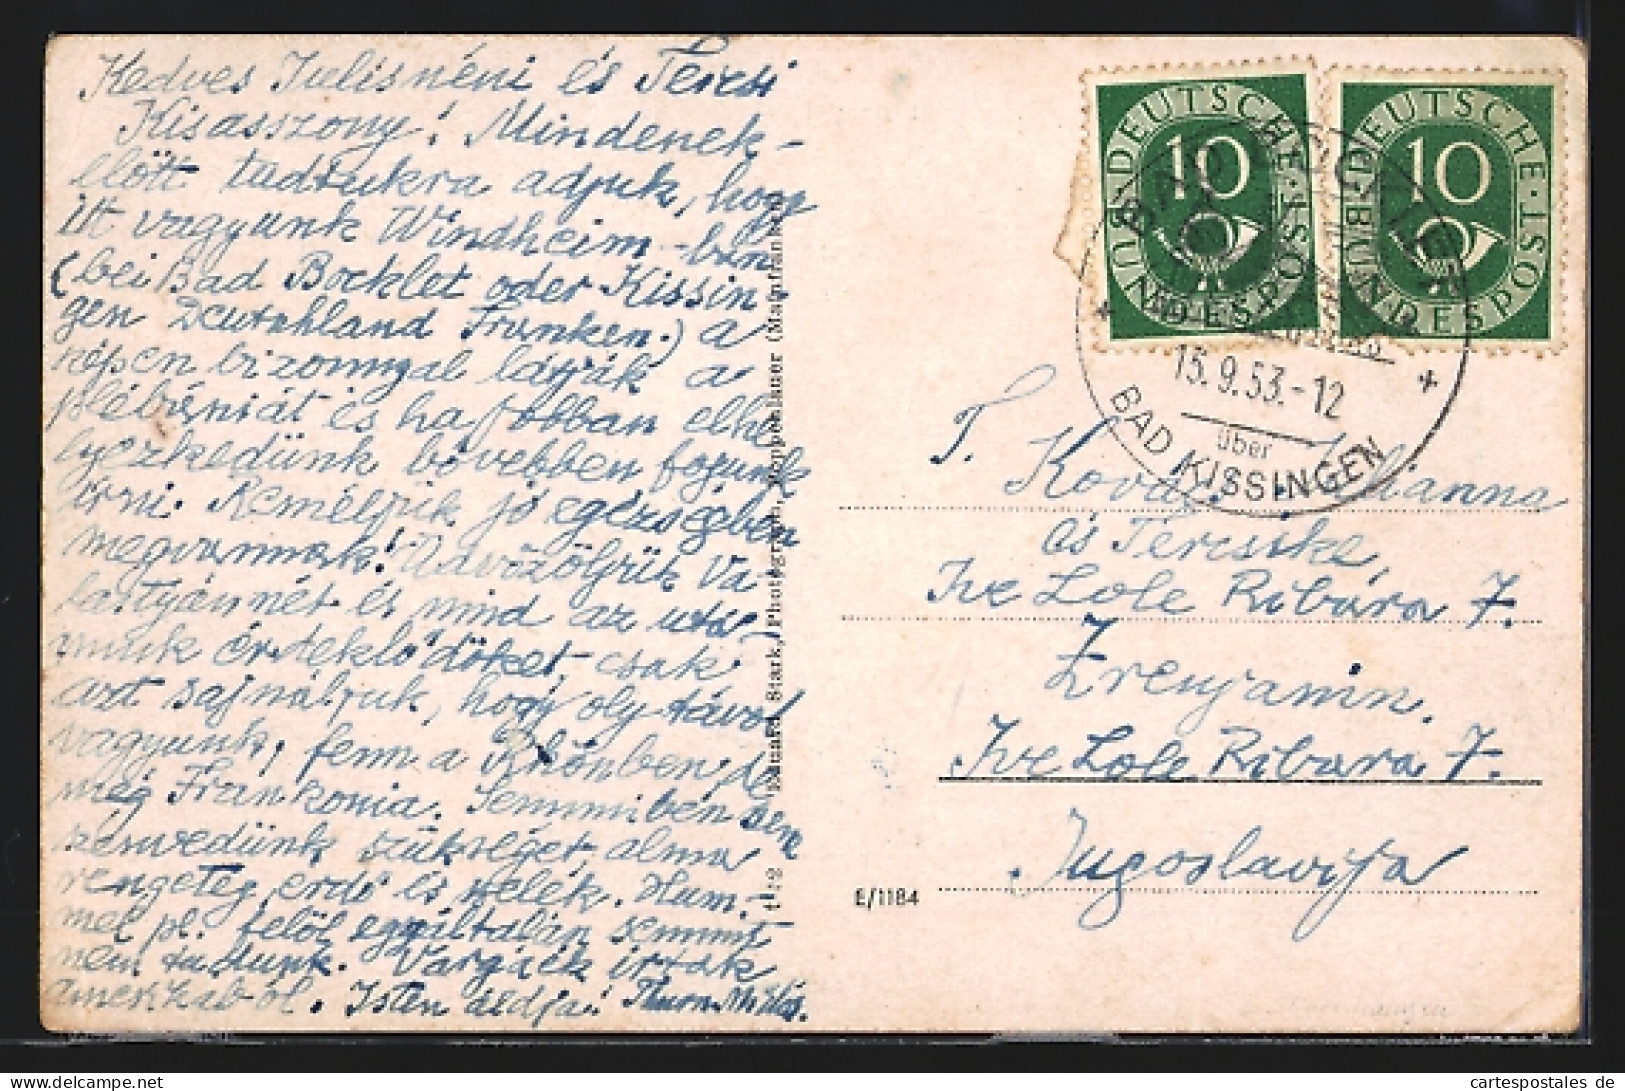 Kedves Julisnéni és Tercsi
Kisasszony! Mindenek-
előtt tudtukra adjuk, hogy
itt vagyunk Windheim-ban
(bei Bad Bocklet oder Kissin-
gen Deutschland Franken.) a
képen bizonnyal látják a
plébániát és ha jobban elhe
lyezkedünk bővebben fogunk
írni. Reméljük jó egészségben
megvannak! Üdvözöljük Va
lastyánnét és mind az utá-
munk érdeklődőket, csak
azt sajnáljuk, hogy oly távol
vagyunk, fenn a Rhönben, de
még Frankonia. Semmiben sem
szenvedünk szükséget, alma
rengeteg, erdő és
Hum-
mel pl. felől egyáltalán semmit
nem tudunk. Vargáék írtak
amerikából. Isten áldja!
Eduard Stark, Photograph, Poppenlauer (Mainfranken)
DEUTSCHE BUNDESPOST
10
DEUTSCHE BUNDESPOST
10
15.9.53.-12
über
BAD KISSINGEN
T.
Julianna
és Tercsike,
Ive Lole Ribára 7.
Zrenjanin.
Ive Lole Ribara 7.
Jugoslavija
E/1184
www.cartespostales.de